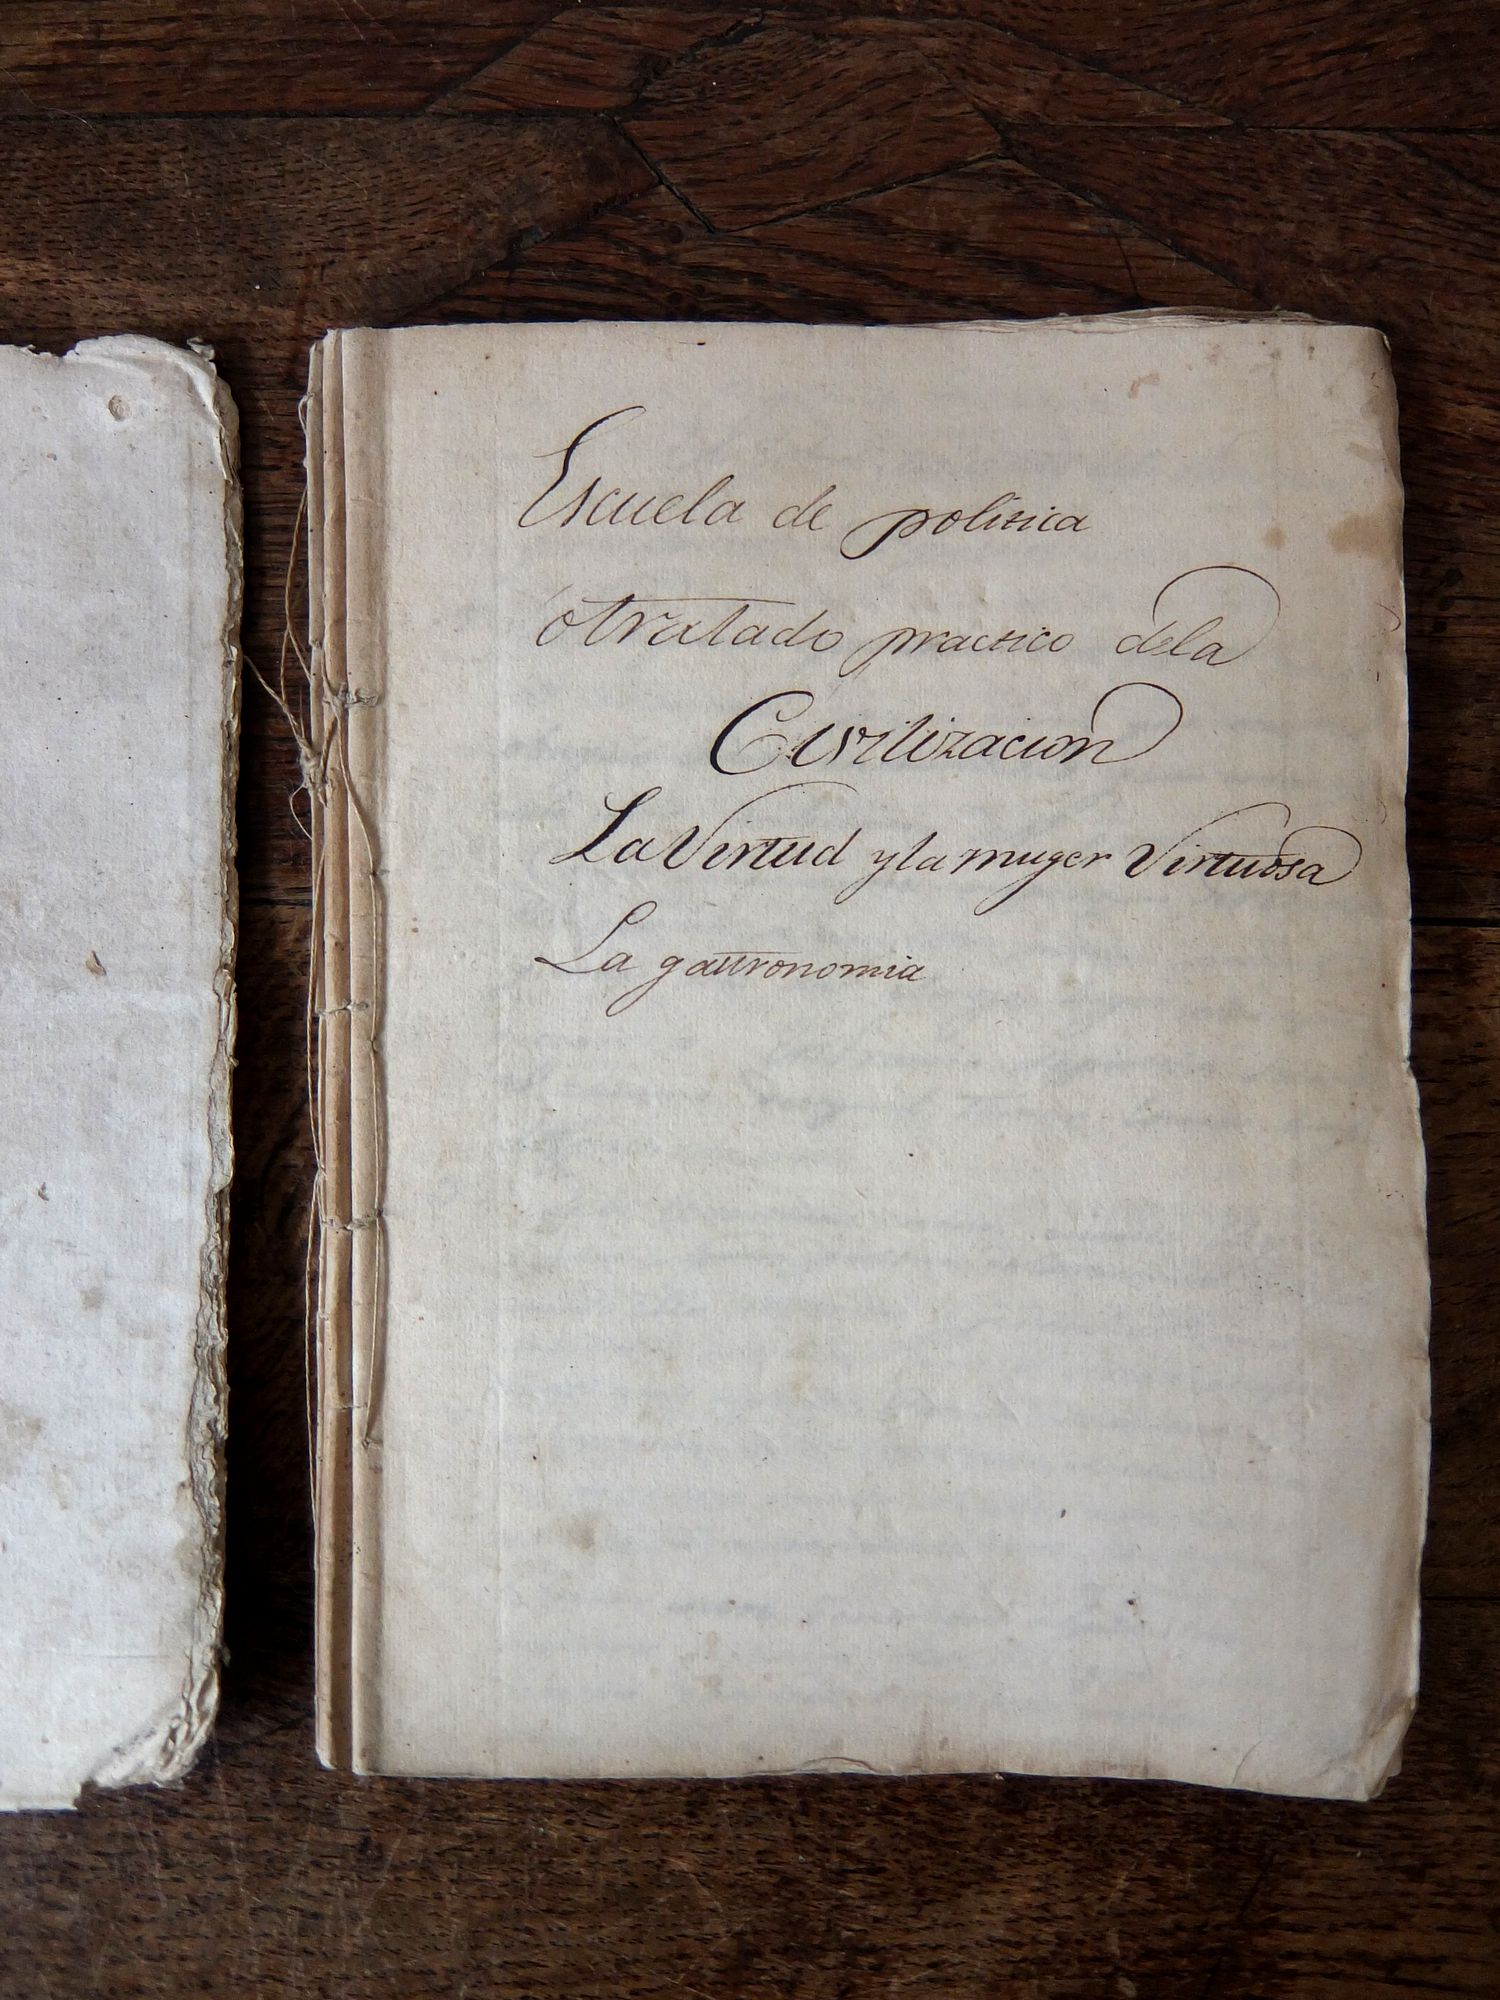 Escuela de politica
ó tratado practico dela
Civilizacion
La Virtud y la muger Virtuosa
La gastronomia